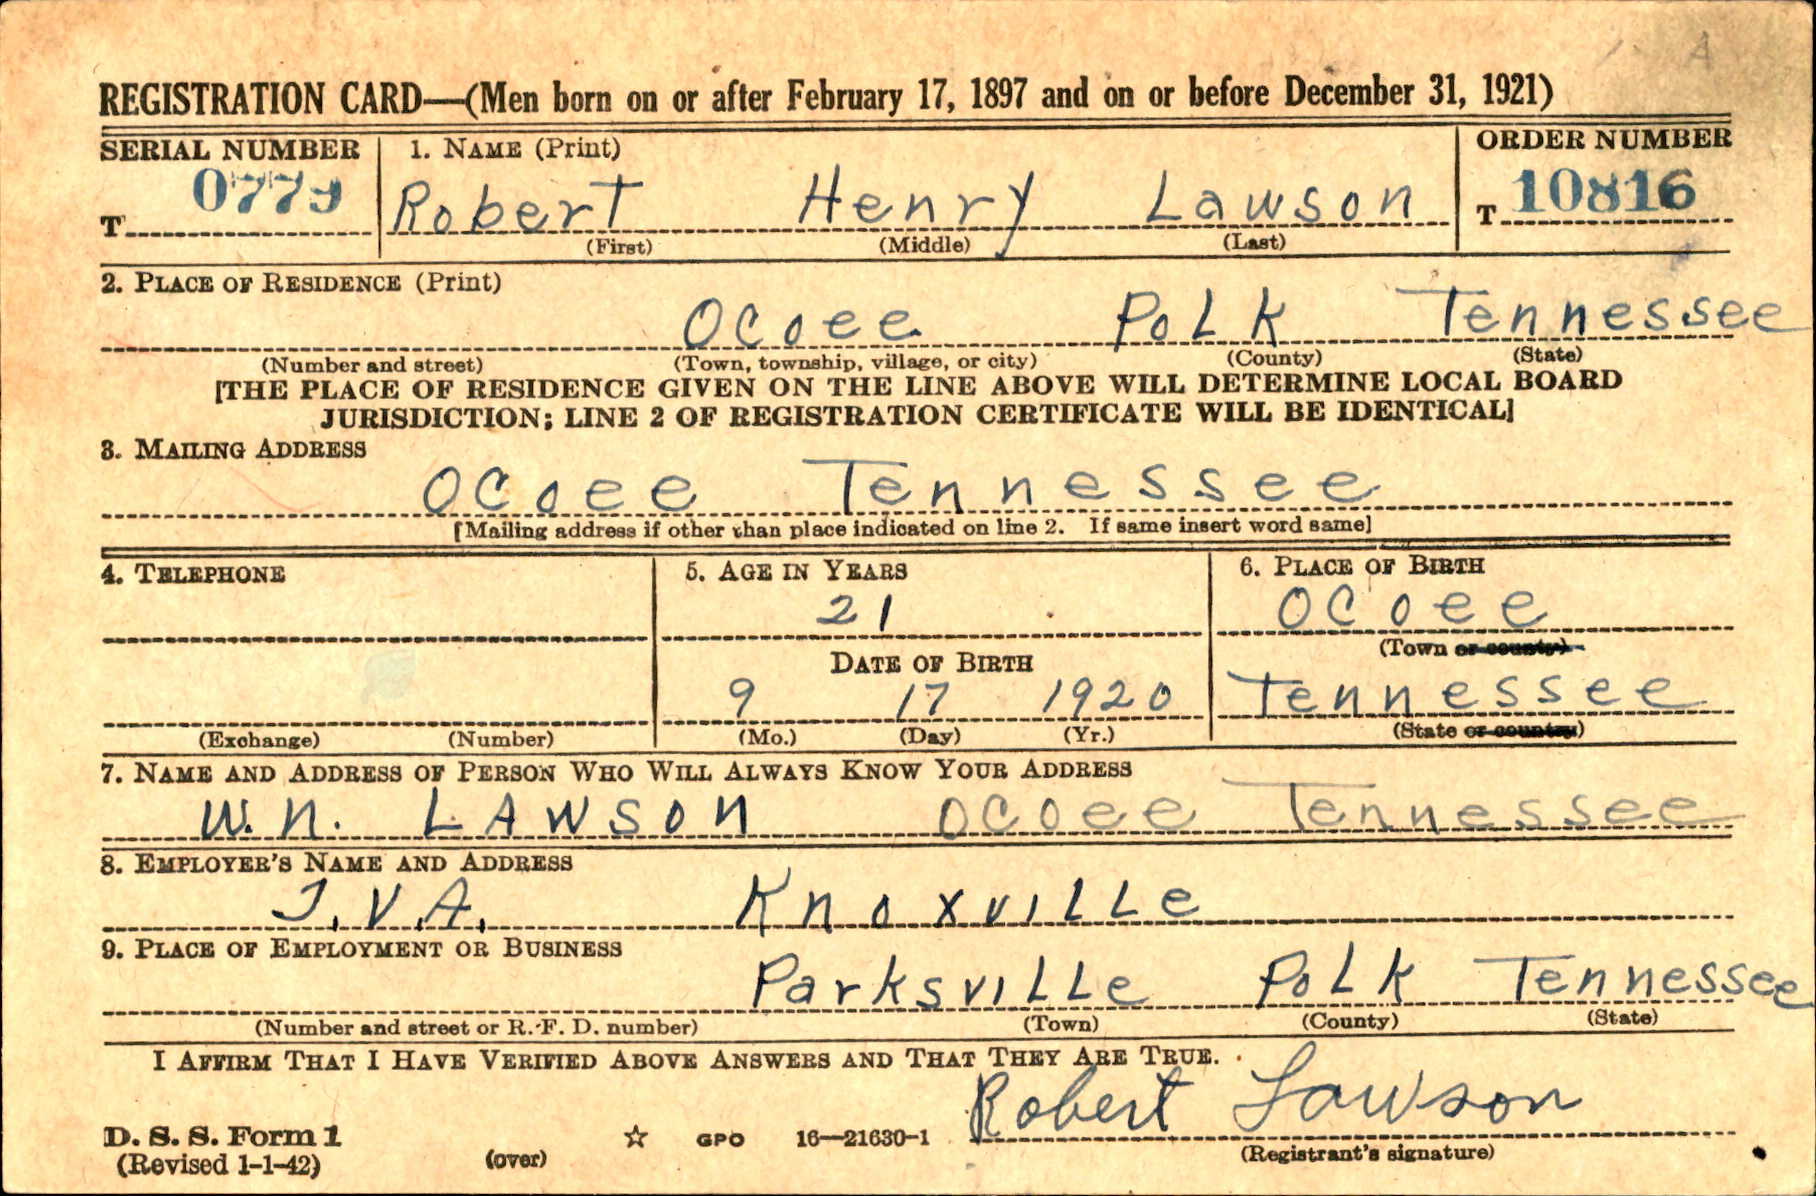 A
REGISTRATION CARD—(Men born on or after February 17, 1897 and on or before December 31, 1921)
SERIAL NUMBER 1. NAME (Print) ORDER NUMBER
T 0779 Robert Henry Lawson T 10816
(First) (Middle) (Last)
2. PLACE OF RESIDENCE (Print)
Ocoee Polk Tennessee
(Number and street) (Town, township, village, or city) (County) (State)
[THE PLACE OF RESIDENCE GIVEN ON THE LINE ABOVE WILL DETERMINE LOCAL BOARD
JURISDICTION; LINE 2 OF REGISTRATION CERTIFICATE WILL BE IDENTICAL]
3. MAILING ADDRESS
Ocoee Tennessee
[Mailing address if other than place indicated on line 2. If same insert word same]
4. TELEPHONE 5. AGE IN YEARS 6. PLACE OF BIRTH
21 Ocoee
(Town or county)
DATE OF BIRTH
9 17 1920 Tennessee
(Exchange) (Number) (Mo.) (Day) (Yr.) (State or country)
7. NAME AND ADDRESS OF PERSON WHO WILL ALWAYS KNOW YOUR ADDRESS
W. N. LAWSON Ocoee Tennessee
8. EMPLOYER'S NAME AND ADDRESS
T.V.A. Knoxville
9. PLACE OF EMPLOYMENT OR BUSINESS
Parksville Polk Tennessee
(Number and street or R. F. D. number) (Town) (County) (State)
I AFFIRM THAT I HAVE VERIFIED ABOVE ANSWERS AND THAT THEY ARE TRUE.
Robert Lawson
D. S. S. Form 1 GPO 16—21630-1
(Revised 1-1-42) (over) (Registrant's signature)